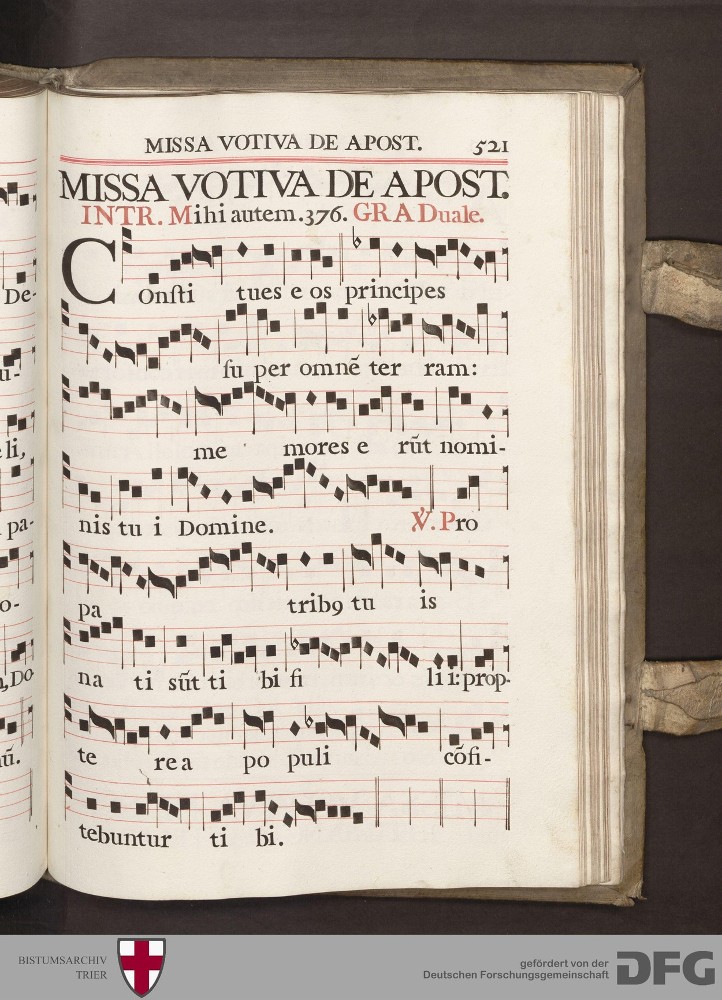 MISSA VOTIVA DE APOST. 521
MISSA VOTIVA DE APOST.
INTR. Mihi autem.376. GRADuale.
COnsti tues e os principes
su per omnē ter ram:
me mores e rūt nomi-
nis tu i Domine. ℣. Pro
pa tribꝰ tu is
na ti sūt ti bi fi li i: prop-
te rea po puli cōfi-
tebuntur ti bi.
De-
u-
eli,
pa-
o-
Do-
ū.
BISTUMSARCHIV
TRIER
gefördert von der
Deutschen Forschungsgemeinschaft
DFG